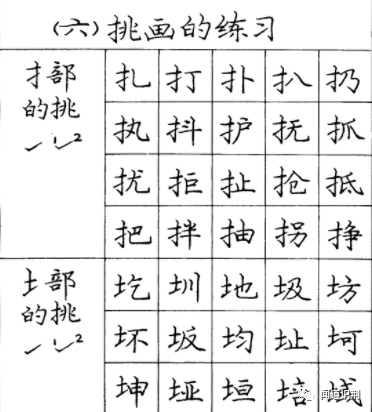 (六)挑画的练习
扌部 扎 打 扑 扒 扔
的挑 执 抖 护 抚 抓
1 2
扰 拒 扯 抢 抵
把 拌 抽 拐 挣
土部 圪 圳 地 圾 坊
的挑 坏 坂 均 址 坷
1 2
坤 垭 垣 培 域